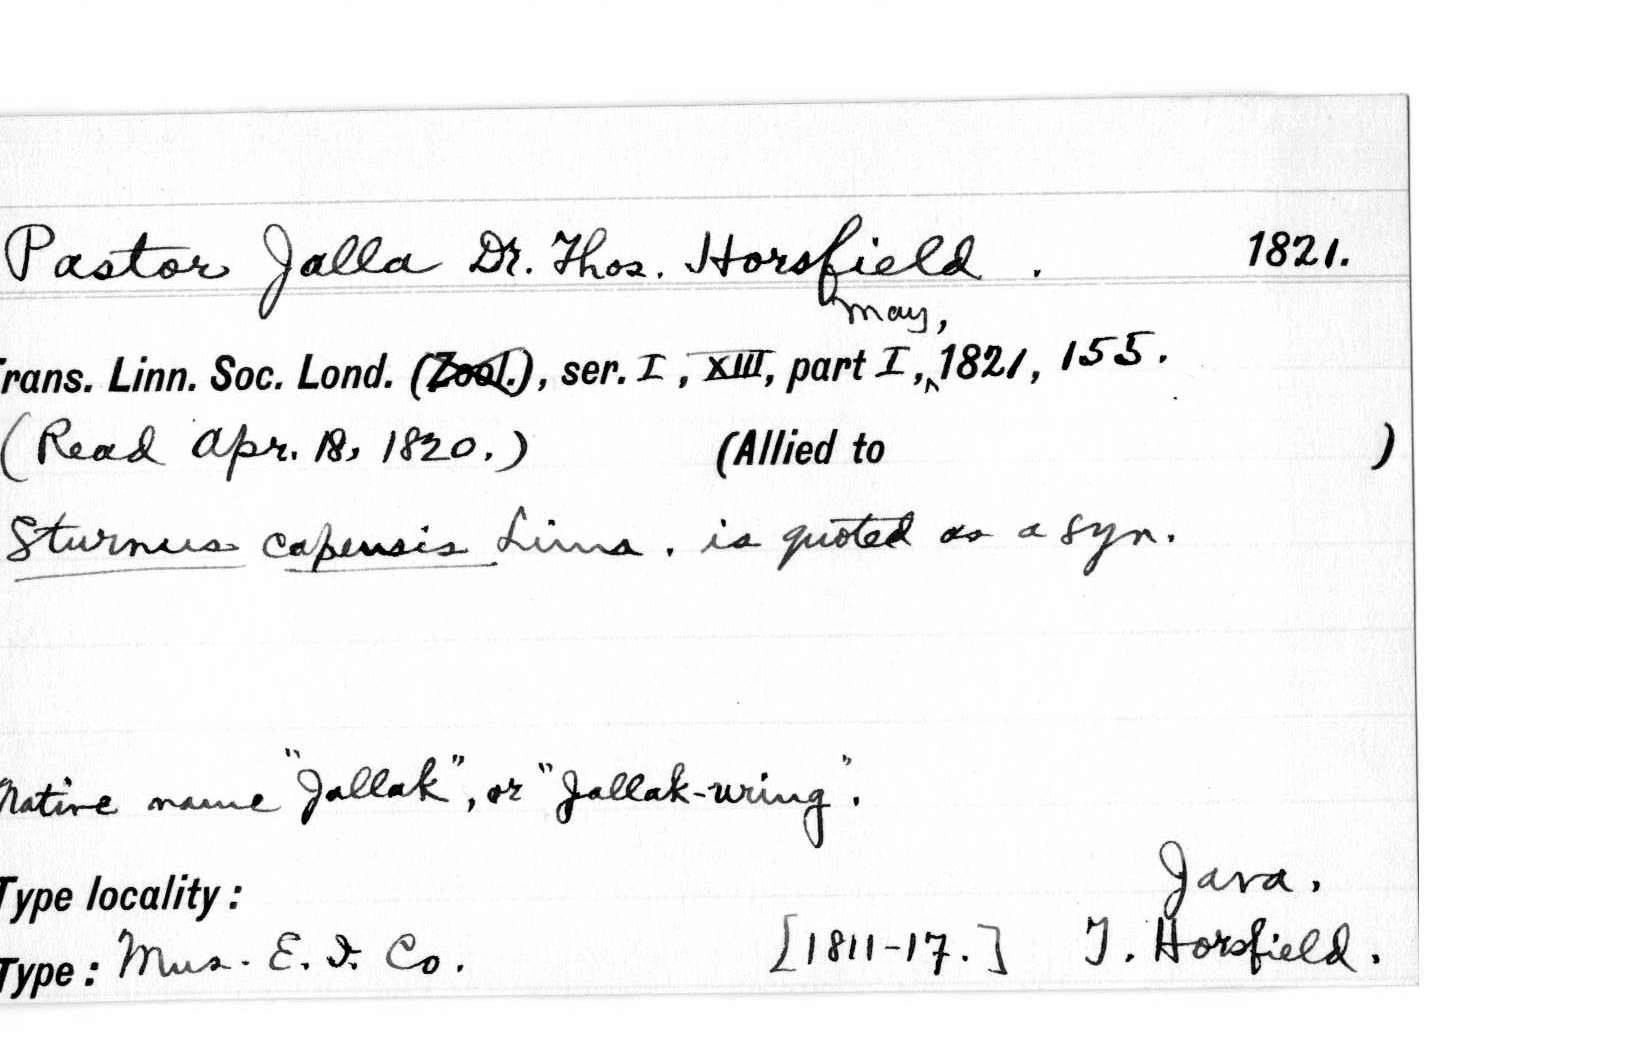 Pastor Jalla Dr. Thos. Horsfield. 1821.
Trans. Linn. Soc. Lond. (Zool.), ser. I, XIII, part I, May, 1821, 155.
(Read Apr. 18, 1820.) (Allied to )
Sturnus capensis Linn. is quoted as a syn.
Native name "Jallak", or "Jallak-uring".
Type locality: Java.
Type: Mus. E. I. Co. [1811-17.] T. Horsfield.